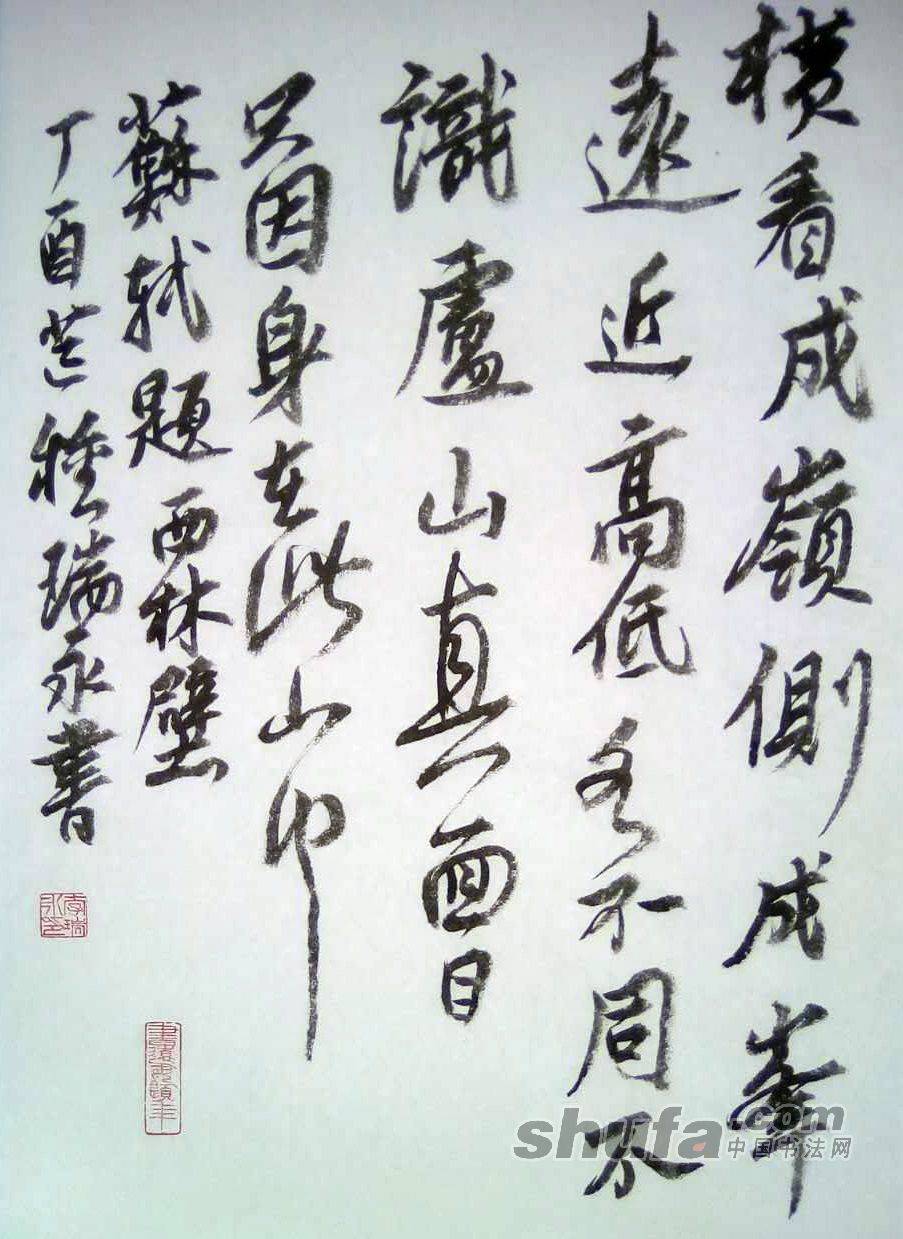 橫看成嶺側成峯
遠近高低各不同不
識盧山真面目
只因身在此山中
蘇軾題西林壁
丁酉芒種瑞永書
李瑞永印
shufa.com
中国书法网